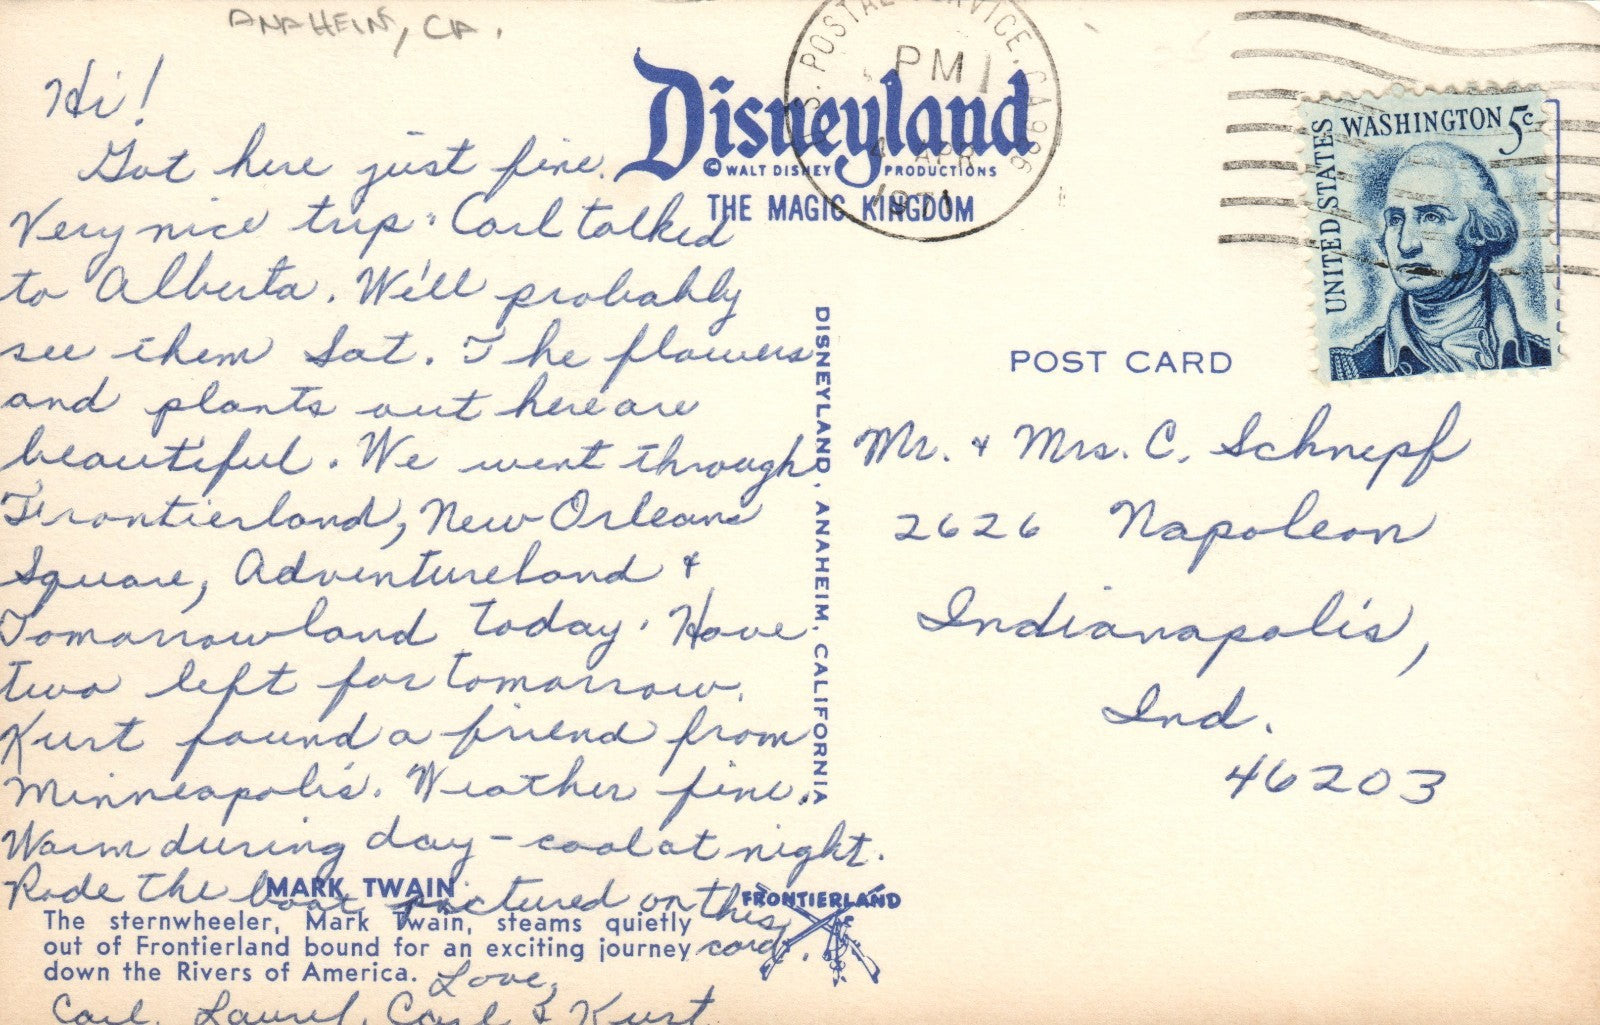 ANAHEIN, CA.
Hi!
Got here just fine.
Very nice trip. Carl talked
to Alberta. We'll probably
see them Sat. The flowers
and plants out here are
beautiful. We went through
Frontierland, New Orleans
Square, Adventureland &
Tomorrowland today. Have
two left for tomorrow.
Kurt found a friend from
Minneapolis. Weather fine.
Warm during day - cool at night.
Rode the boat pictured on this
card.
Love,
Carl, Laurel, Carl & Kurt
MARK TWAIN
The sternwheeler, Mark Twain, steams quietly
out of Frontierland bound for an exciting journey
down the Rivers of America.
FRONTIERLAND
Disneyland
© WALT DISNEY PRODUCTIONS
THE MAGIC KINGDOM
DISNEYLAND, ANAHEIM, CALIFORNIA
U.S. POSTAL SERVICE, CA 926
PM
4 APR
1971
UNITED STATES
WASHINGTON 5c
POST CARD
Mr. & Mrs. C. Schnepf
2626 Napoleon
Indianapolis,
Ind.
46203